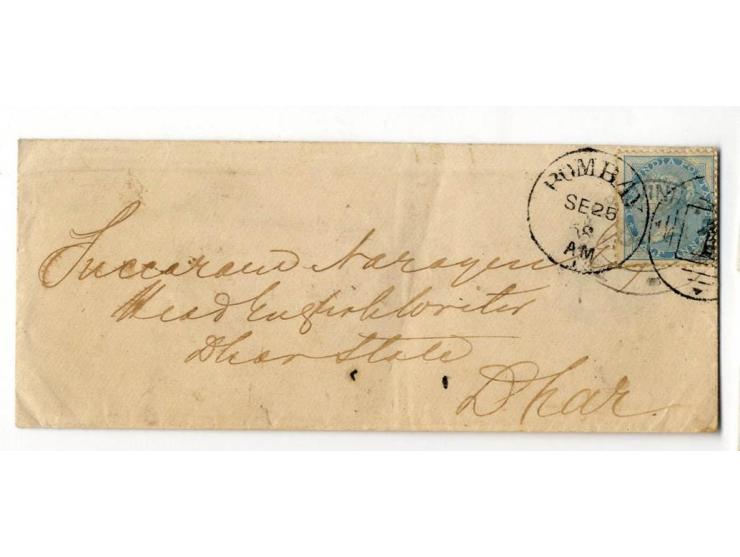 BOMBAY
SE 25
AM
INDIA POSTAGE
Succaram Narayen
Head English Writer
Dhar State
Dhar.